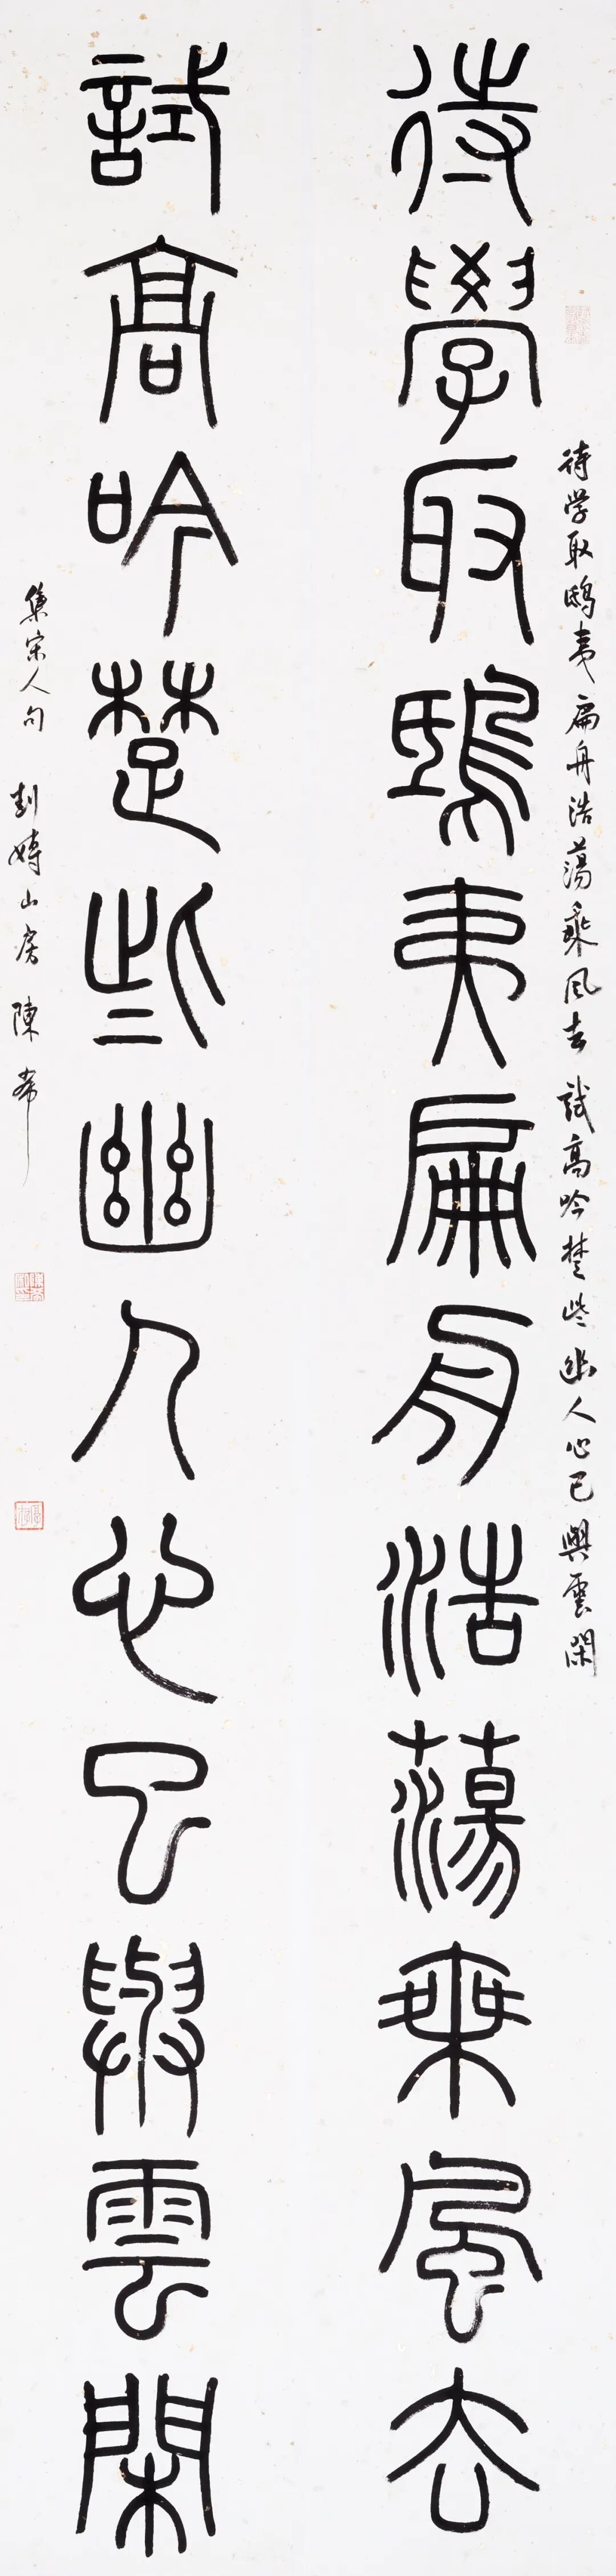 待學取鴟夷扁舟浩蕩乘風去
待学取鴟夷扁舟浩蕩乘风去 試高吟楚些幽人心已與雲閑
試高吟楚些幽人心已與雲閑
集宋人句 山房 陳希